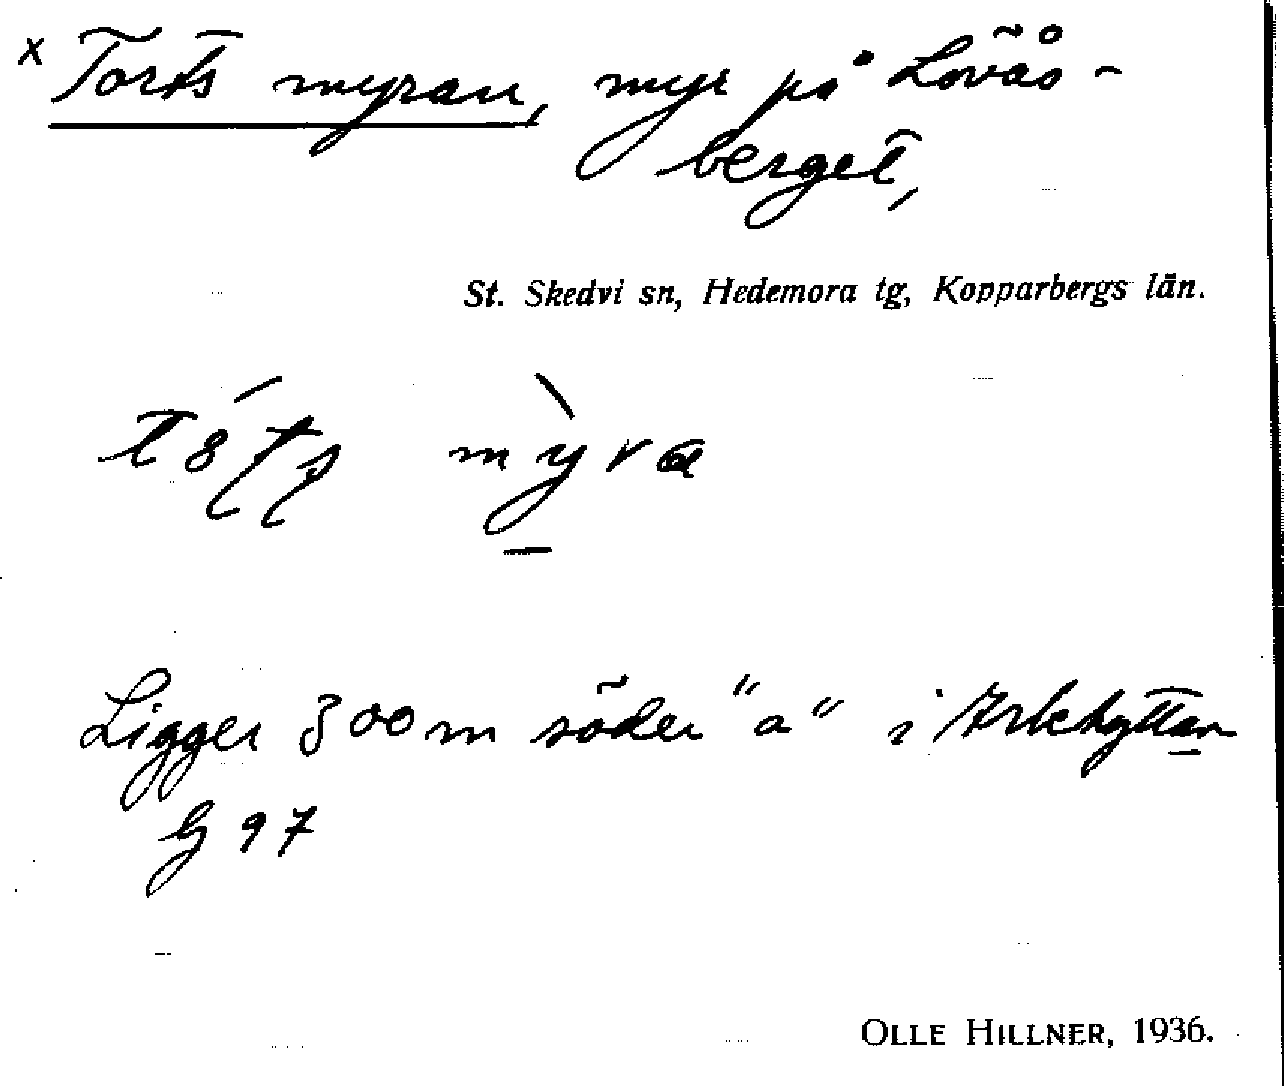 x Torts myran, myr på Lövås-
berget,
St. Skedvi sn, Hedemora tg, Kopparbergs län.
Ligger 300 m söder "a" i Arbehyttan
G 97
OLLE HILLNER, 1936.